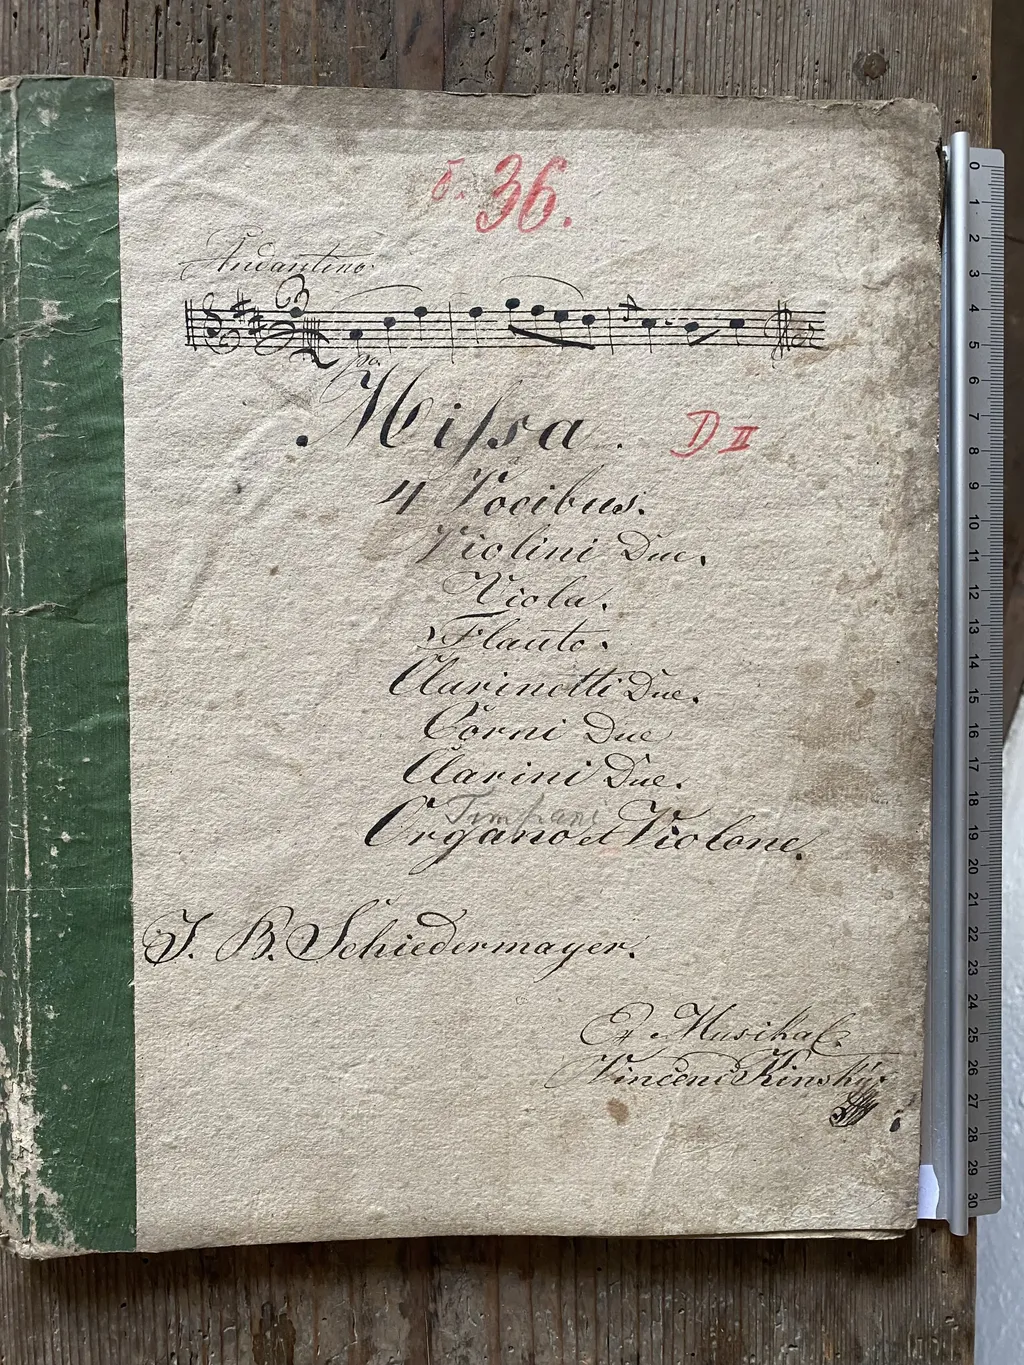 36.
Andantino
po
Missa. D II
4 Vocibus.
Violini Due.
Viola.
Flauto.
Clarinetti Due.
Corni Due
Clarini Due.
Timpani
Organo et Violone.
J. B. Schiedermayer.
Musikal.
Vincenc Kinský
0
1
2
3
4
5
6
7
8
9
10
11
12
13
14
15
16
17
18
19
20
21
22
23
24
25
26
27
28
29
30